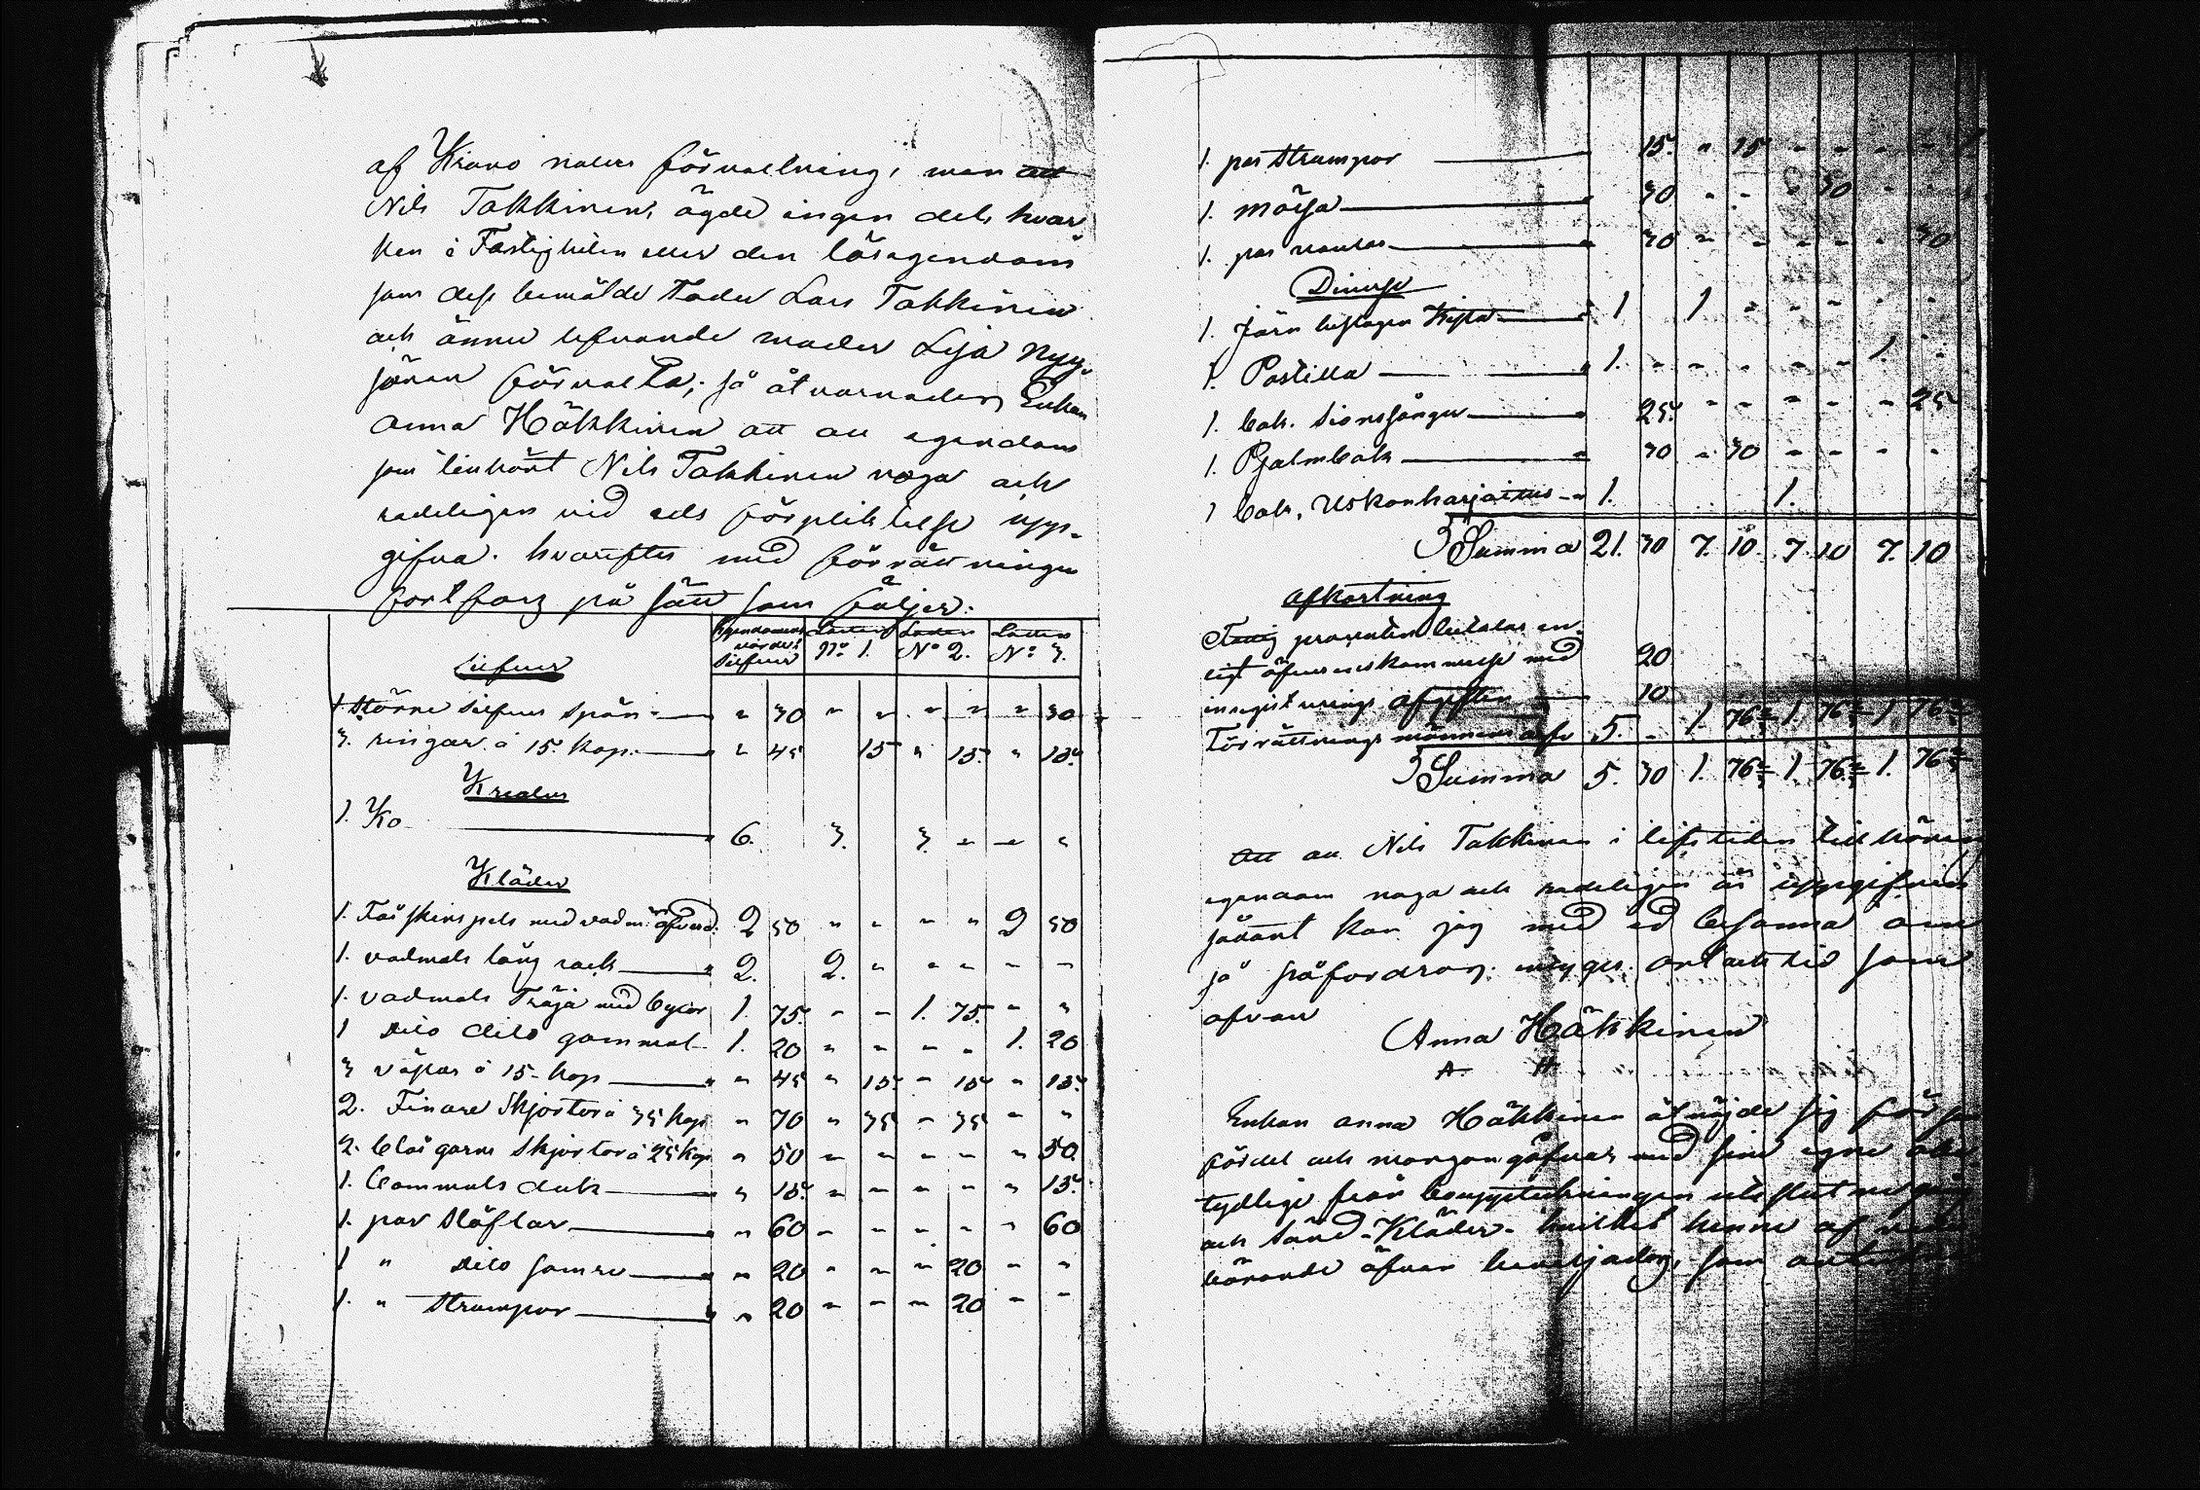 af Krono naturs förvaltning, men att
Nils Takkinen, ägde ingen del, hvar
ken i Fastigheten eller den lösegendom
som dess bemälde Fader Lars Takkinen
och ännu lefvande moder Lisa Nyy-
sönen förvalta; så åtvarnades Enkan
Anna Häkkinen att all egendom
som tillhört Nils Takkinen noga och
redeligen vid eds förpliktelse upp-
gifva. hvarefter med förrättningen
fortforз på sätt som följer:
Egendomens värde i Silfver | Lotten No 1. | Lotten No 2. | Lotten No 3.
Silfver
1 större silfver spän " 30 " " " " " 30
3. ringar à 15 kop. " 45 15 " 15 " 15.
Kreatur
1. Ko 6. 3. 3. " " "
Kläder
1. Fårskins pels med vadm: öfverd. 2 50 " " " " 2 50
1. vadmals lång rock 2. 2. " " " " "
1. vadmals Tröja med byxor 1. 75. " " 1. 75. " "
1 dito dito gammal 1. 20 " " " " 1. 20
3 västar à 15 kop " 45 " 15. " 15 " 15.
2. Finare Skjortor à 35 kop " 70 " 35 " 35 " "
2. blårgarns skjortor à 25 kop " 50 " " " " " 50
1. bommuls duk " 15. " " " " " 15.
1. par stöflar " 60 " " " " " 60
1 " dito samre " 20 " " " 20 " "
1. " strumpor " 20 " " " 20 " "
1. par strumpor 15. " 15 " " " "
1. mössa 30 " " " 30 " "
1. par vantar 30 " " " " " 30
Diverse
1. järn beslagen Kista 1 1 " " " " "
1. Postilla 1. " " " " " 1. "
1. bok. Sionssånger 25. " " " " " 25
1. Psalmbok 30 " 30 " " " "
1 bok, Uskonharjoitus 1. 1.
Summa 21. 30 7. 10. 7. 10 7. 10
Afkortning
Fattig procenten betalas en-
ligt öfverenskommelse med 20
inregistrerings afgiften 10
Förrättnings männens arfv 5. " 1. 76 2/3 1. 76 2/3 1. 76 2/3
Summa 5. 30 1. 76 2/3 1. 76 2/3 1. 76 2/3
Att all Nils Takkinen i lifstiden tillhörig
egendom noga och redeligen är uppgifven
sådant kan jag med ed besanna om
så påfordras. intygar. ort och tid som
ofvan
Anna Häkkinen
A H
Enkan Anna Häkkinen åtnöjde sig för
fördel och morgongåfvan med sine egne
tydlige från bouppteckningen uteslutne gång
och säng-Kläder. hvilket henne af veder
börande äfven beviljades, som